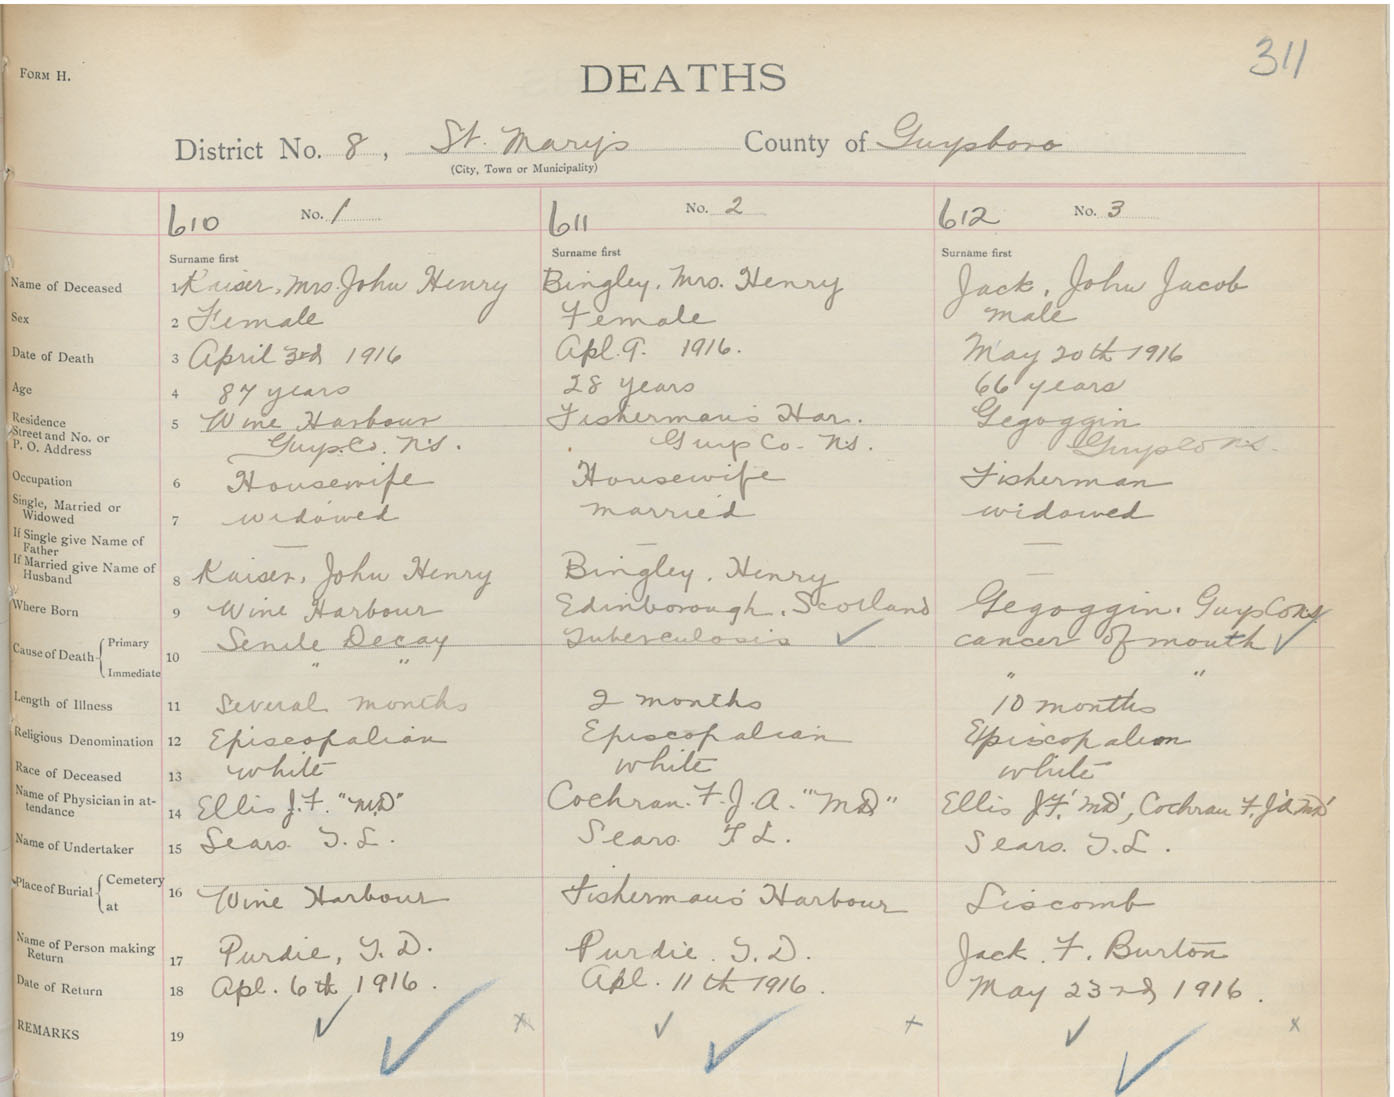 311
FORM H.
DEATHS
District No. 8, St. Mary's County of Guysboro
(City, Town or Municipality)
610 No. 1 611 No. 2 612 No. 3
Surname first Surname first Surname first
Name of Deceased 1 Kaiser, Mrs. John Henry Bingley, Mrs. Henry Jack, John Jacob
Sex 2 Female Female male
Date of Death 3 April 3rd 1916 Apl. 9. 1916. May 20th 1916
Age 4 87 years 28 years 66 years
Residence 5 Wine Harbour Fisherman's Har. Gegoggin
Street and No. or P. O. Address Guys. Co. N.S. Guys Co. N.S. Guys Co N.S.
Occupation 6 Housewife Housewife Fisherman
Single, Married or Widowed 7 widowed married widowed
If Single give Name of Father — — —
If Married give Name of Husband 8 Kaiser, John Henry Bingley, Henry —
Where Born 9 Wine Harbour Edinborough, Scotland Gegoggin, Guys Co NS
Cause of Death Primary 10 Senile Decay Tuberculosis ✓ cancer of mouth ✓
Immediate " " " "
Length of Illness 11 Several months 2 months 10 months
Religious Denomination 12 Episcopalian Episcopalian Episcopalion
Race of Deceased 13 white white white
Name of Physician in attendance 14 Ellis J. F. "M.D" Cochran. F. J. A. "MD" Ellis J F. 'MD', Cochran F. J A 'MD'
Name of Undertaker 15 Sears. T. L. Sears. T L. Sears. T. L.
Place of Burial Cemetery at 16 Wine Harbour Fisherman's Harbour Liscomb
Name of Person making Return 17 Purdie, T. D. Purdie. T. D. Jack. F. Burton
Date of Return 18 Apl. 6th 1916. Apl. 11th 1916. May 23rd 1916.
REMARKS 19 ✓ ✓ x ✓ ✓ x ✓ ✓ x